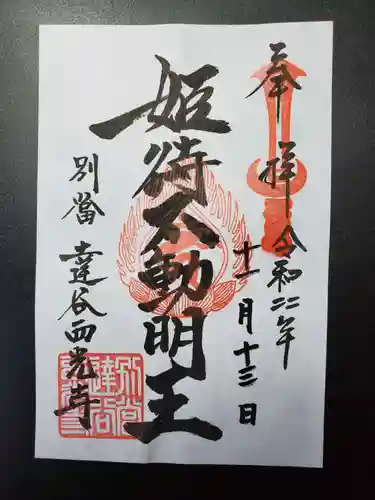 奉拝
令和二年
十一月十三日
姫待不動明王
別當
達谷西光寺